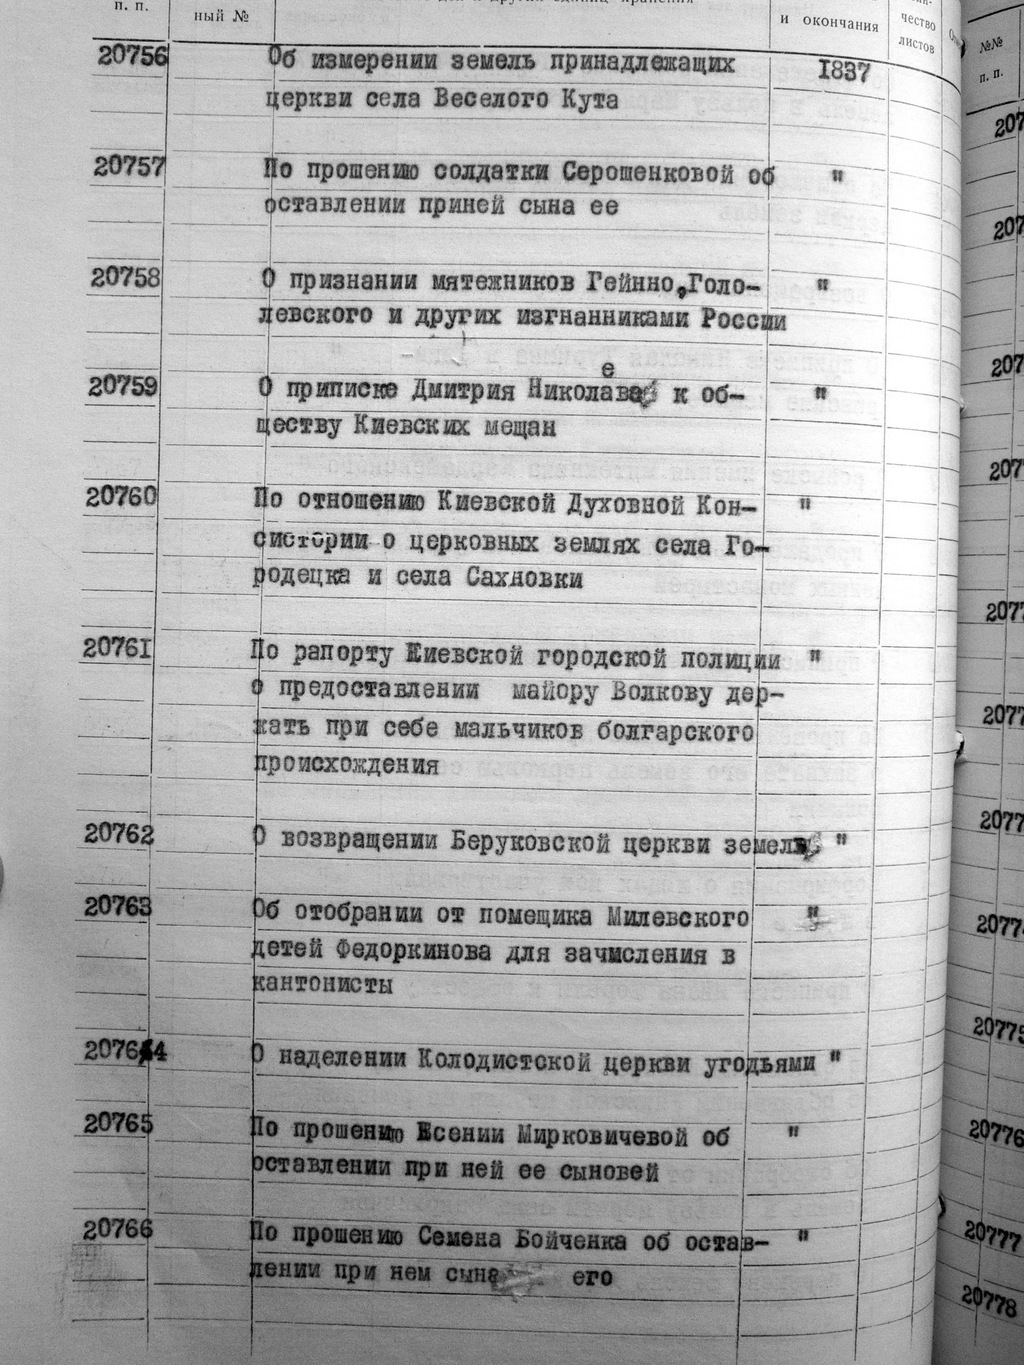 п. п.
ный №
и окончания
чество
листов
№№
п. п.
20756 Об измерении земель принадлежащих 1837
церкви села Веселого Кута
20757 По прошению солдатки Серошенковой об "
оставлении приней сына ее
20758 О признании мятежников Гейнно, Голо- "
левского и других изгнанниками России
20759 О приписке Дмитрия Николаева к об- "
ществу Киевских мещан
20760 По отношению Киевской Духовной Кон- "
систории о церковных землях села Го-
родецка и села Сахновки
20761 По рапорту Киевской городской полиции "
о предоставлении майору Волкову дер-
жать при себе мальчиков болгарского
происхождения
20762 О возвращении Беруковской церкви земель "
20763 Об отобрании от помещика Милевского "
детей Федоркинова для зачисления в
кантонисты
20764 О наделении Колодистской церкви угодьями "
20765 По прошению Ксении Мирковичевой об "
оставлении при ней ее сыновей
20766 По прошению Семена Бойченка об остав- "
лении при нем сына его
20775
20776
20777
20778